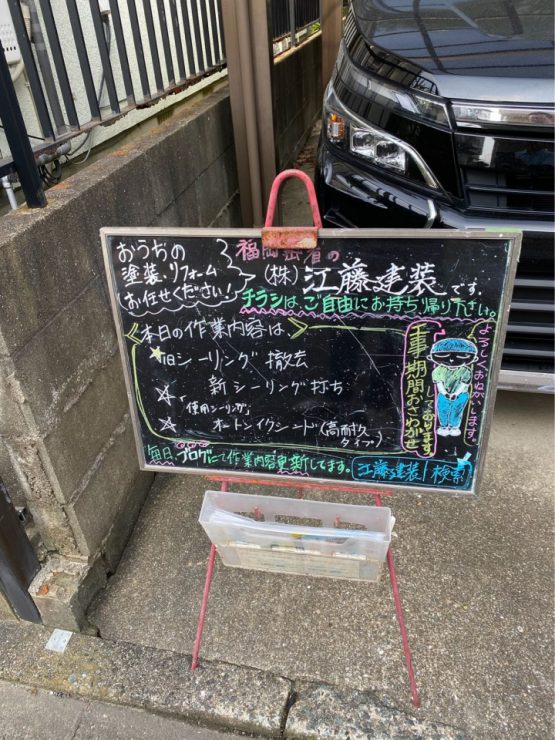 おうちの
塗装・リフォーム
お任せください!
福岡出省の
(株)江藤建装です。
チラシはご自由にお持ち帰り下さい。
本日の作業内容は
旧シーリング 撤去
新シーリング打ち
「使用シーリング」
オートンイクシード(高耐久
タイプ)
工事期間おさわがせ
しております。
よろしくおねがいします。
毎日、ブログにて作業内容更新してます。
江藤建装 検索